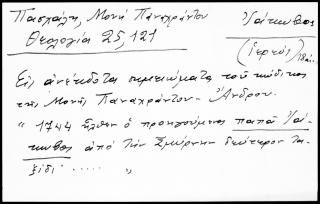 Πασχάλη, Μονή Παναχράντου
Θεολογία 25, 121
Ὑάκινθος
(ἱερεύς) 18 αἰ.
Εἰς ἀνέκδοτα σημειώματα τοῦ κώδικος
τῆς Μονῆς Παναχράντου - Ἄνδρου.
" 1744 ἦλθεν ὁ προηγούμενος παπᾶ Ὑά-
κινθος ἀπό τήν Σμύρνην δεύτερον τα-
ξίδι ..... "